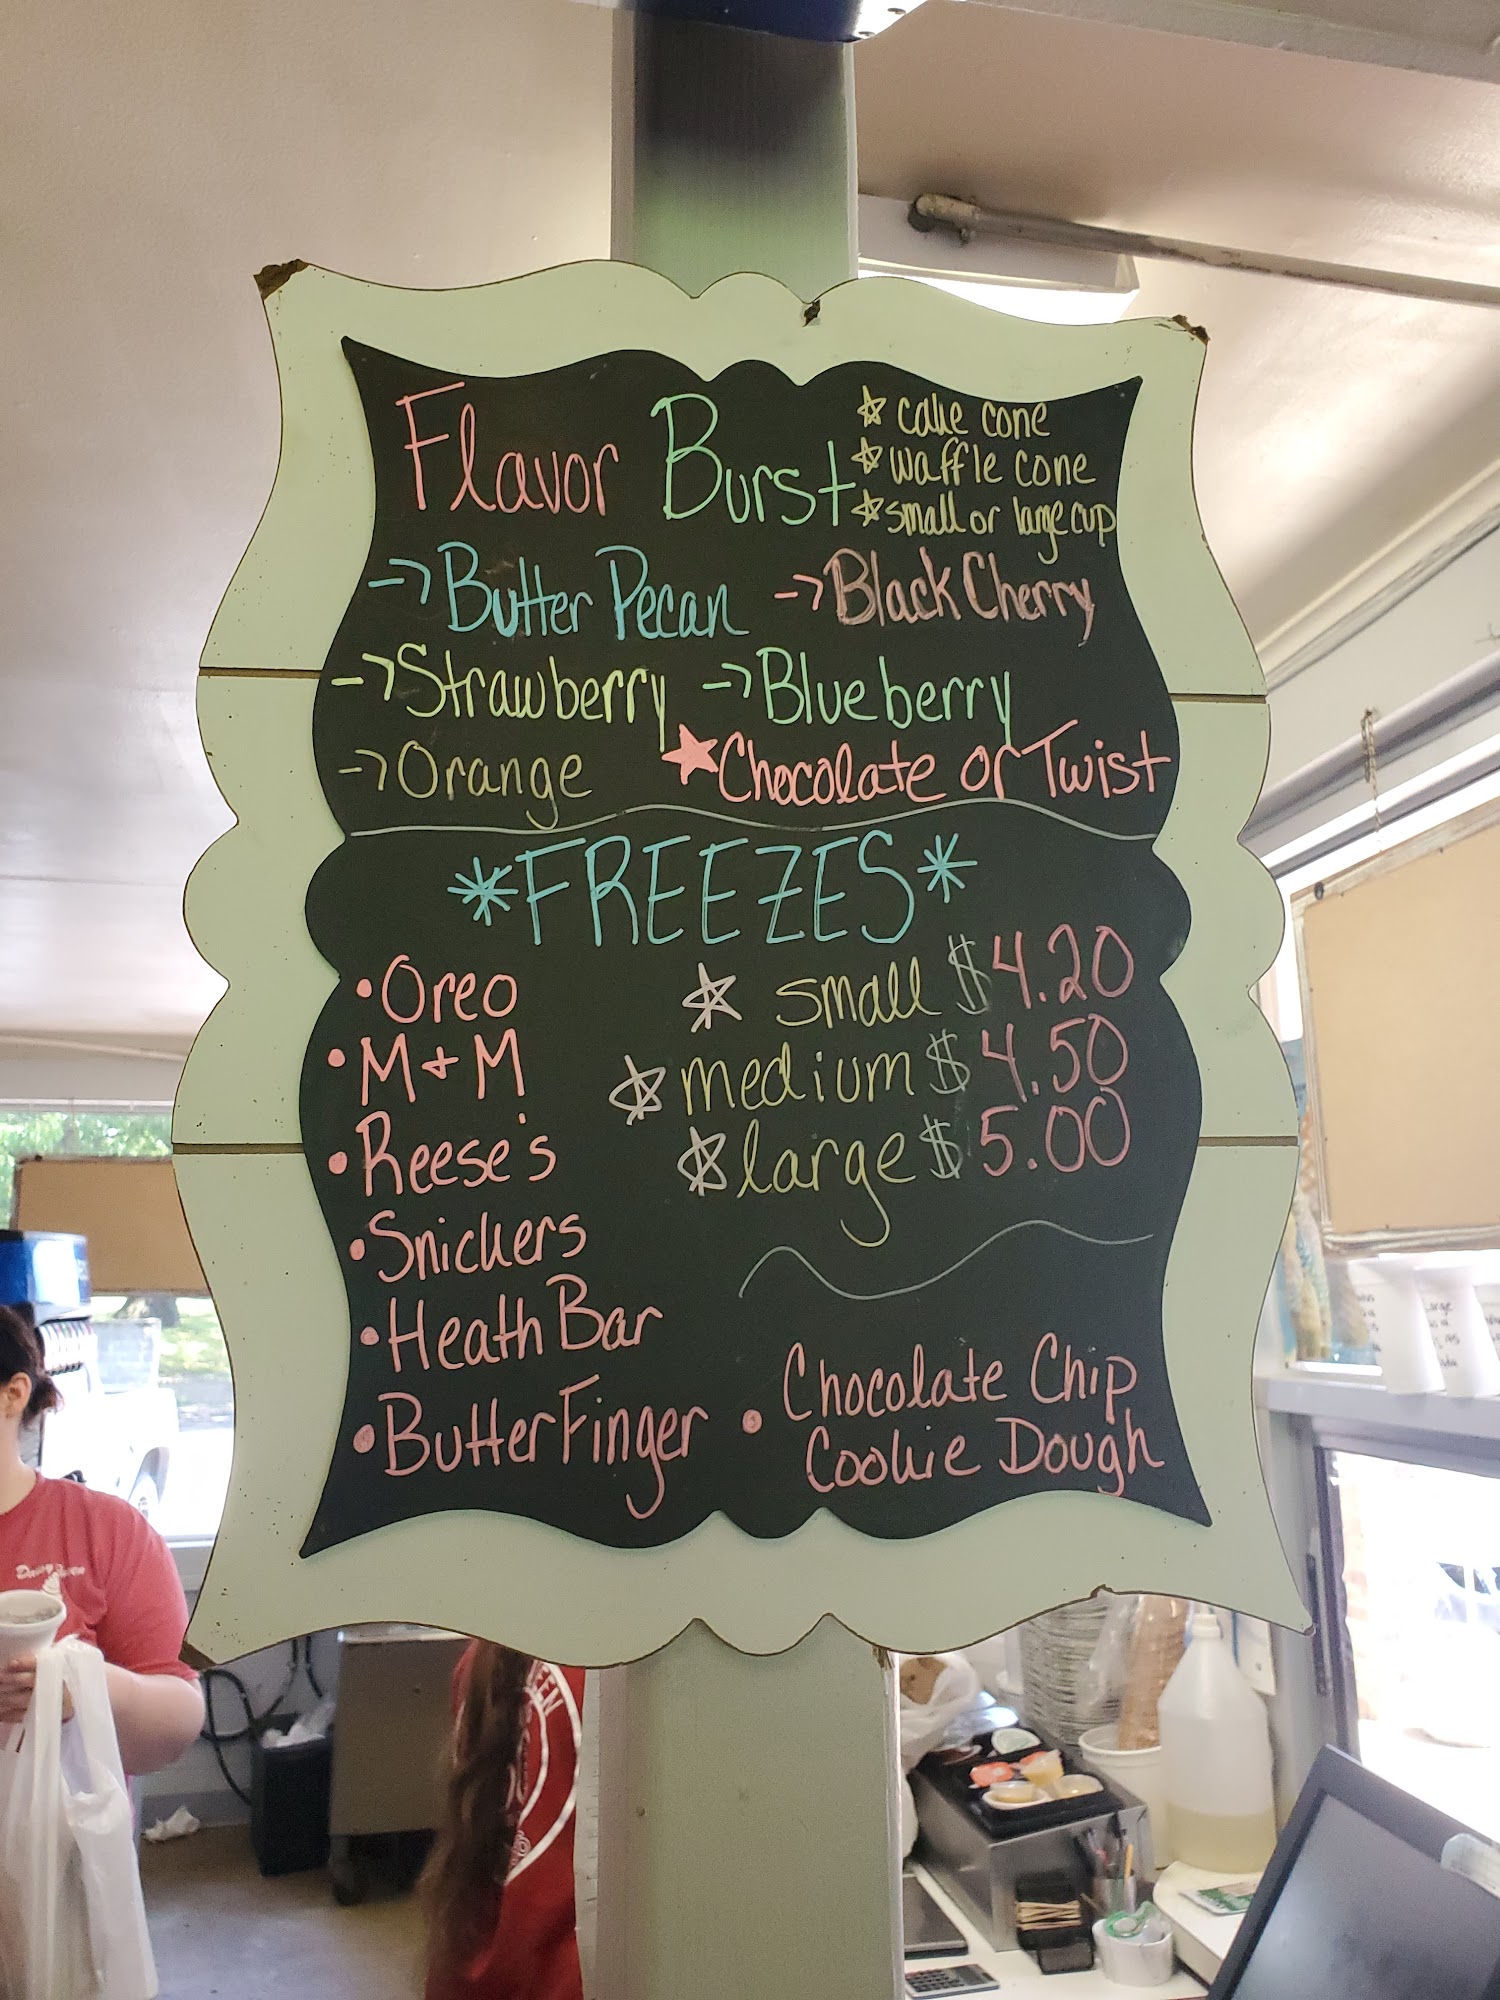 Flavor Burst
cake cone
waffle cone
small or large cup
Butter Pecan
Black Cherry
Strawberry
Blueberry
Orange
Chocolate or Twist
*FREEZES*
• Oreo
• M + M
• Reese's
• Snickers
• Heath Bar
• ButterFinger
small $4.20
medium $4.50
large $5.00
• Chocolate Chip
Cookie Dough